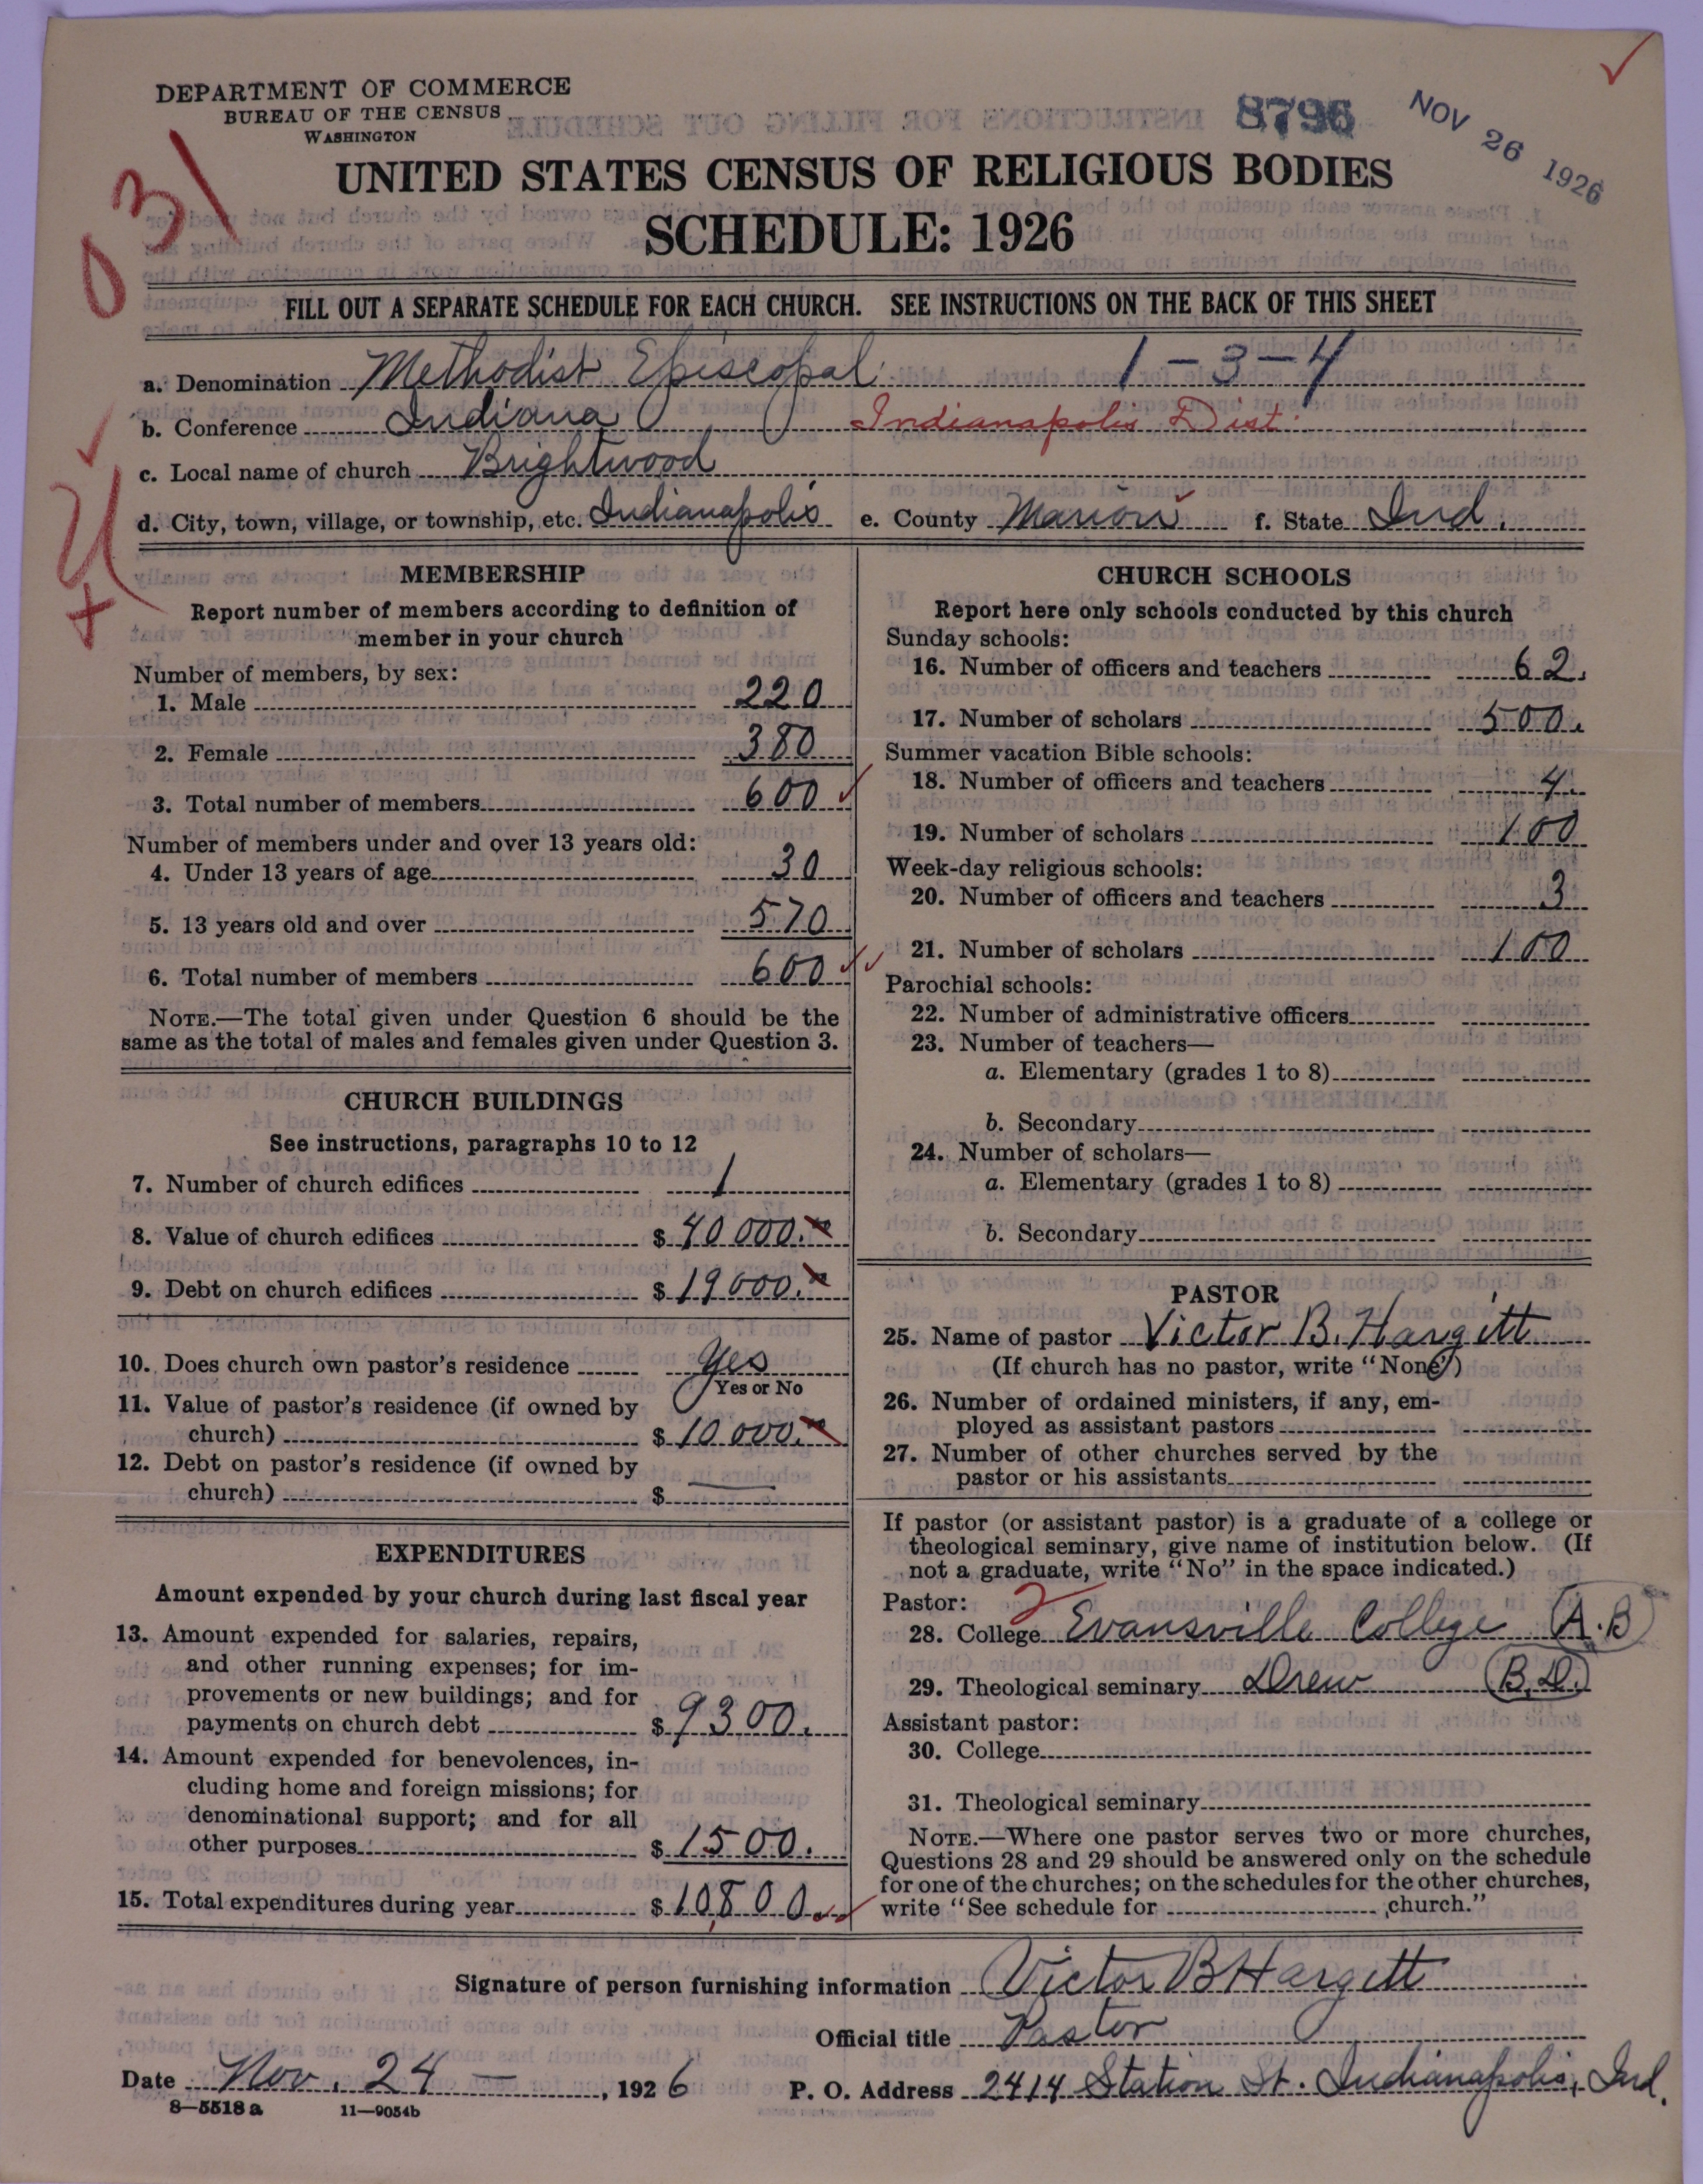 DEPARTMENT OF COMMERCE
BUREAU OF THE CENSUS
WASHINGTON
8796
NOV 26 1926
031
UNITED STATES CENSUS OF RELIGIOUS BODIES
SCHEDULE: 1926
FILL OUT A SEPARATE SCHEDULE FOR EACH CHURCH. SEE INSTRUCTIONS ON THE BACK OF THIS SHEET
a. Denomination Methodist Episcopal 1-3-4
b. Conference Indiana Indianapolis Dist.
c. Local name of church Brightwood
d. City, town, village, or township, etc. Indianapolis e. County Marion f. State Ind.
MEMBERSHIP
Report number of members according to definition of
member in your church
Number of members, by sex:
1. Male 220
2. Female 380
3. Total number of members 600
Number of members under and over 13 years old:
4. Under 13 years of age 30
5. 13 years old and over 570
6. Total number of members 600
NOTE.—The total given under Question 6 should be the
same as the total of males and females given under Question 3.
CHURCH BUILDINGS
See instructions, paragraphs 10 to 12
7. Number of church edifices 1
8. Value of church edifices $ 40 000.
9. Debt on church edifices $ 19 000.
10. Does church own pastor's residence Yes
Yes or No
11. Value of pastor's residence (if owned by
church) $ 10 000.
12. Debt on pastor's residence (if owned by
church) $
EXPENDITURES
Amount expended by your church during last fiscal year
13. Amount expended for salaries, repairs,
and other running expenses; for im-
provements or new buildings; and for
payments on church debt $ 9300.
14. Amount expended for benevolences, in-
cluding home and foreign missions; for
denominational support; and for all
other purposes $ 1500.
15. Total expenditures during year $ 10,800
CHURCH SCHOOLS
Report here only schools conducted by this church
Sunday schools:
16. Number of officers and teachers 62.
17. Number of scholars 500.
Summer vacation Bible schools:
18. Number of officers and teachers 4.
19. Number of scholars 100
Week-day religious schools:
20. Number of officers and teachers 3
21. Number of scholars 100
Parochial schools:
22. Number of administrative officers
23. Number of teachers—
a. Elementary (grades 1 to 8)
b. Secondary
24. Number of scholars—
a. Elementary (grades 1 to 8)
b. Secondary
PASTOR
25. Name of pastor Victor B. Hargitt
(If church has no pastor, write "None")
26. Number of ordained ministers, if any, em-
ployed as assistant pastors
27. Number of other churches served by the
pastor or his assistants
If pastor (or assistant pastor) is a graduate of a college or
theological seminary, give name of institution below. (If
not a graduate, write "No" in the space indicated.)
Pastor: 2
28. College Evansville College (A.B)
29. Theological seminary Drew (B.D.)
Assistant pastor:
30. College
31. Theological seminary
NOTE.—Where one pastor serves two or more churches,
Questions 28 and 29 should be answered only on the schedule
for one of the churches; on the schedules for the other churches,
write "See schedule for church."
Signature of person furnishing information Victor B Hargitt
Official title Pastor
Date Nov. 24 —, 1926 P. O. Address 2414 Station St. Indianapolis, Ind.
8—5518 a 11—9054b